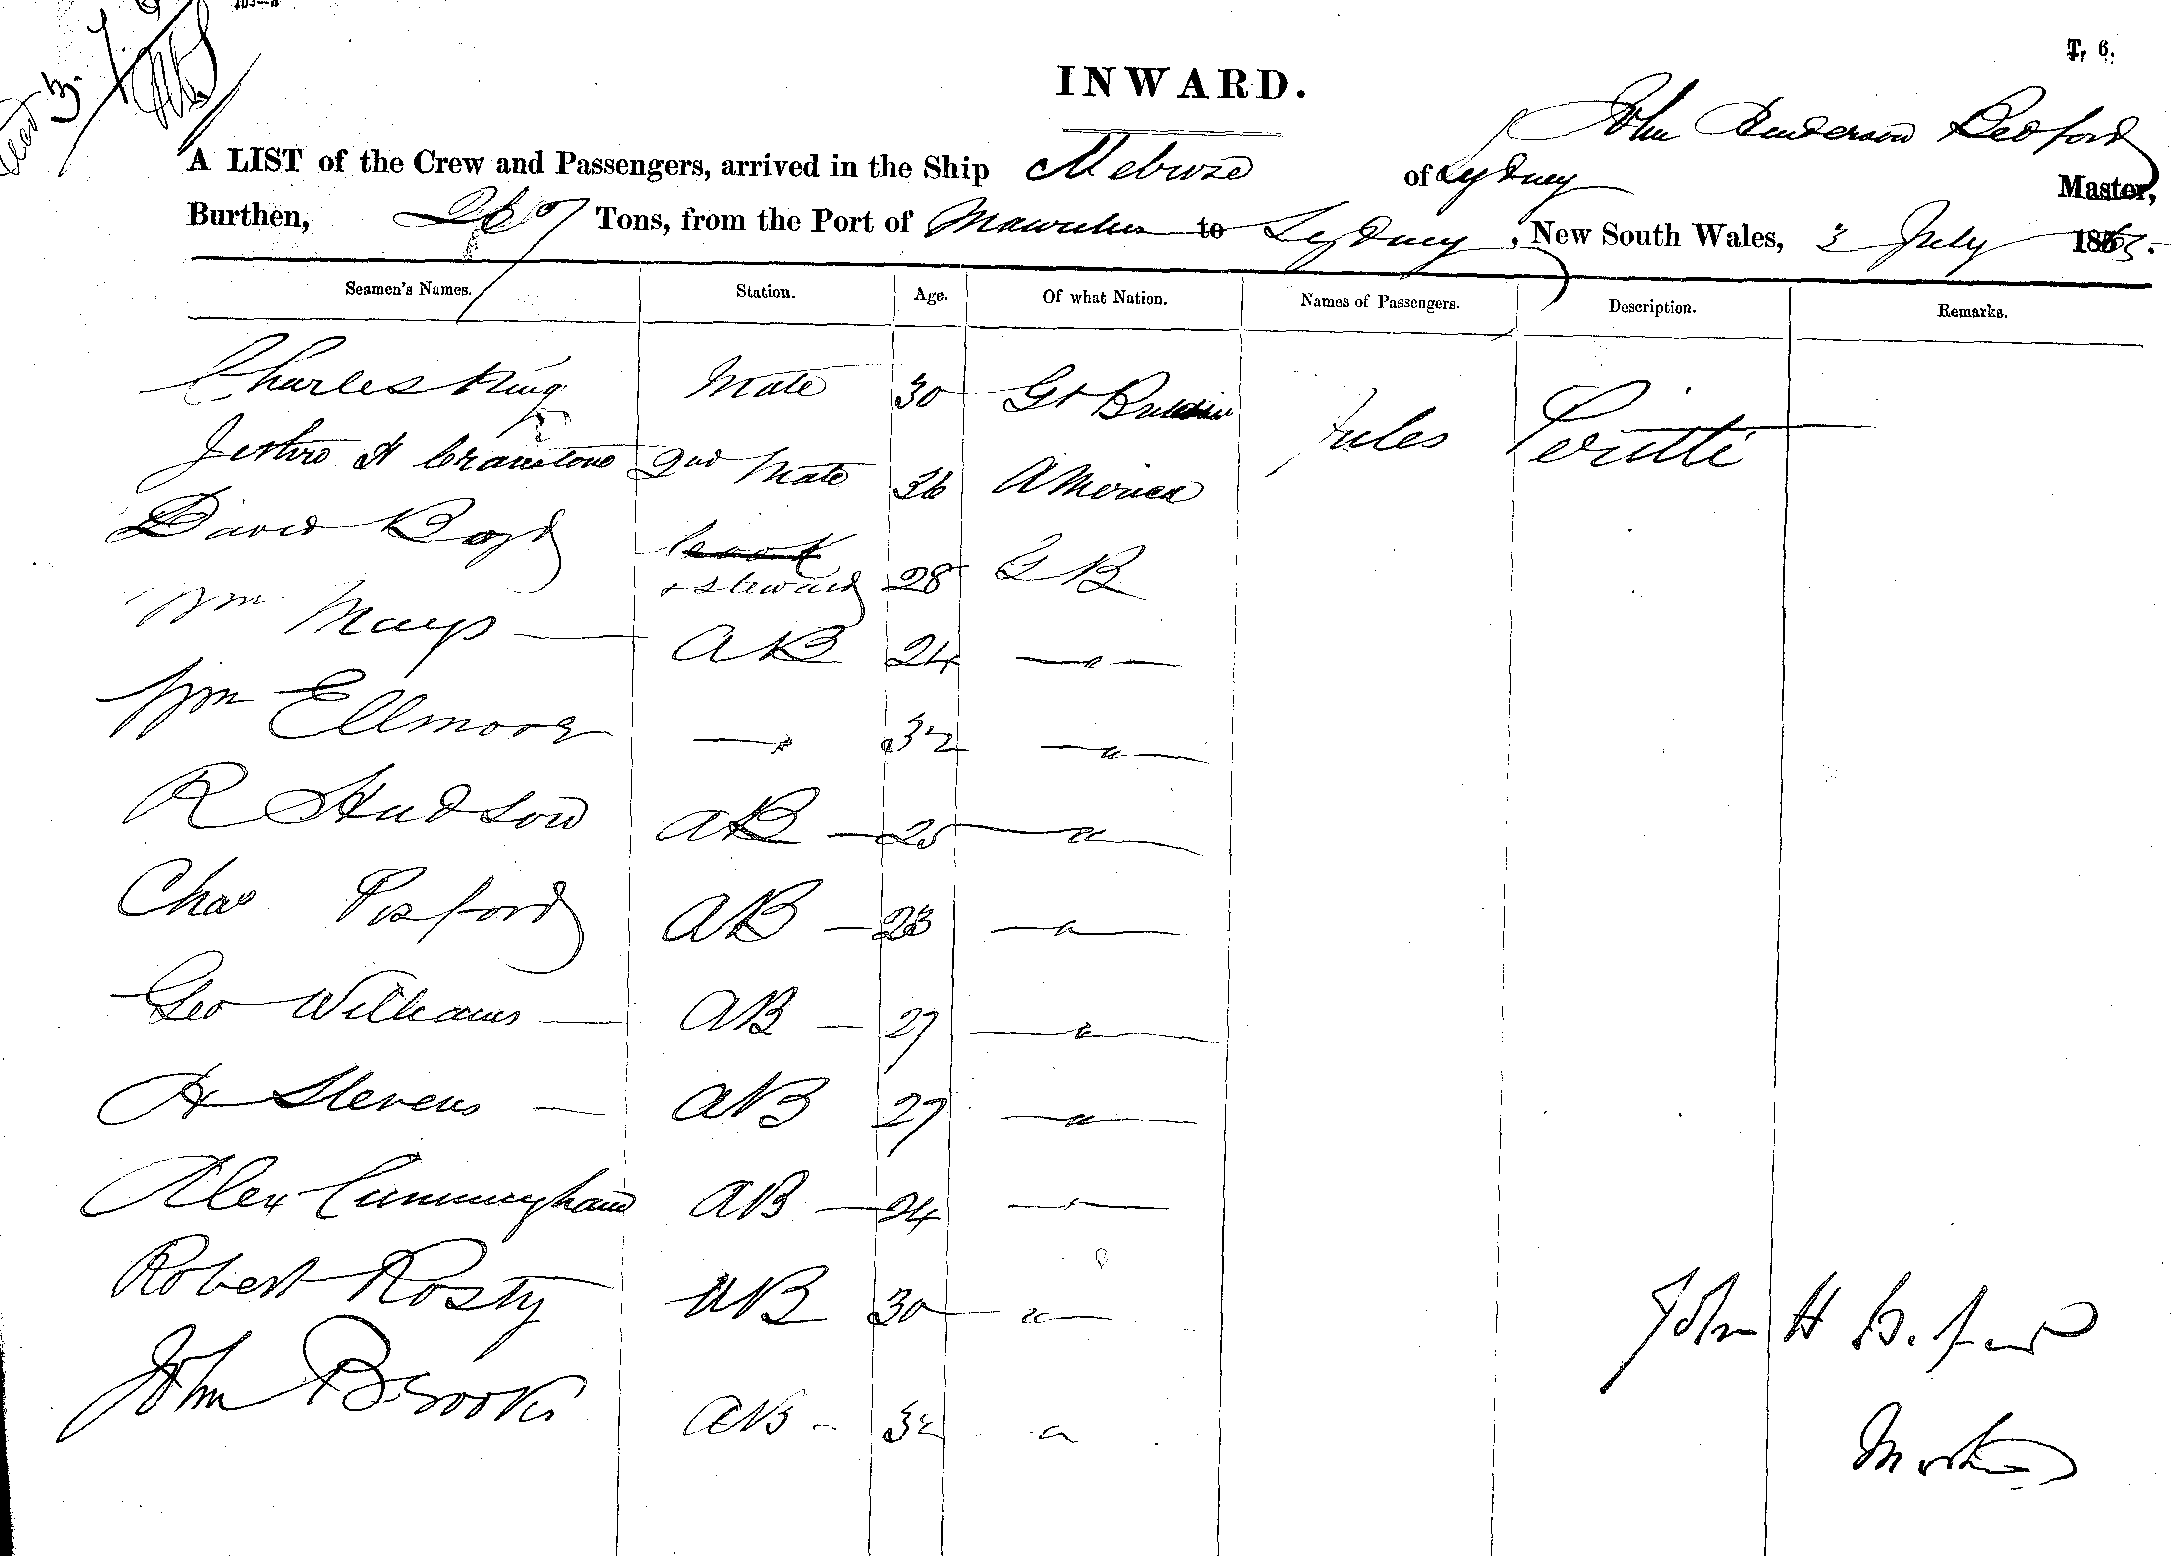 T. 6.
INWARD.
John Anderson Bedford
A LIST of the Crew and Passengers, arrived in the Ship Melrose of Sydney Master,
Burthen, 267 Tons, from the Port of Mauritius to Sydney, New South Wales, 3 July 1863.
Seamen's Names. Station. Age. Of what Nation. Names of Passengers. Description. Remarks.
Charles King Mate 30 Gt Britain Jules Perutti
Jethro H Cranstone 2nd Mate 36 America
David Boyd Cook
+ Steward 28 G B
Wm Mays AB 24 — " —
Wm Ellmoor — " 32 — " —
R Hudson AB 25 — " —
Chas Pisford AB 23 — " —
Geo Williams AB 27 — " —
H Stevens AB 27 — " —
Alex Cunningham AB 24 — " —
Robert Rosty AB 30 — " —
John Brooks AB 32 "
John H
Master